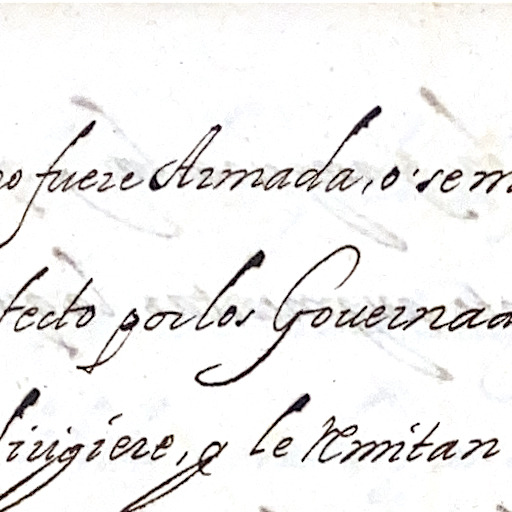 o fuere Armada, o sem
fecto por los Gouernad
dirigiere, q le Remitan